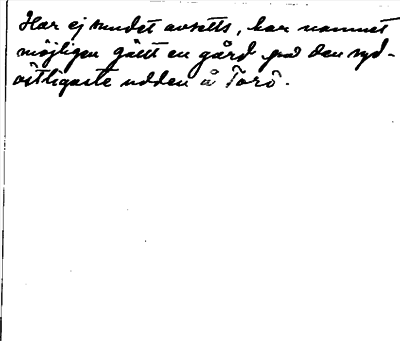 Har ej sundet avsetts, har namnet
möjligen gällt en gård på den syd-
östligaste udden å Torö.